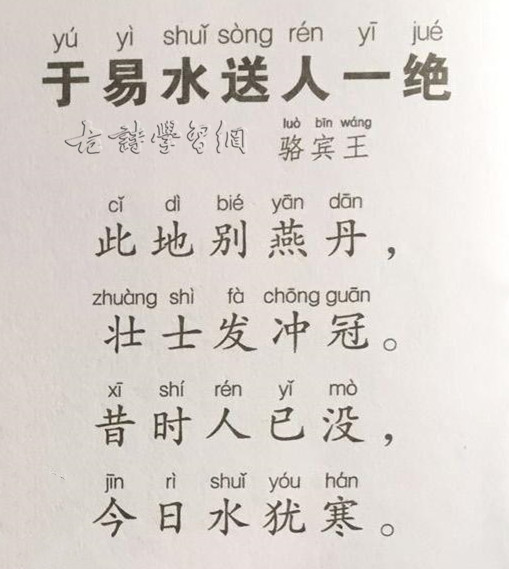 yú yì shuǐ sòng rén yī jué
于易水送人一绝
古詩學習網
luò bīn wáng
骆宾王
cǐ dì bié yān dān
此地别燕丹，
zhuàng shì fà chōng guān
壮士发冲冠。
xī shí rén yǐ mò
昔时人已没，
jīn rì shuǐ yóu hán
今日水犹寒。